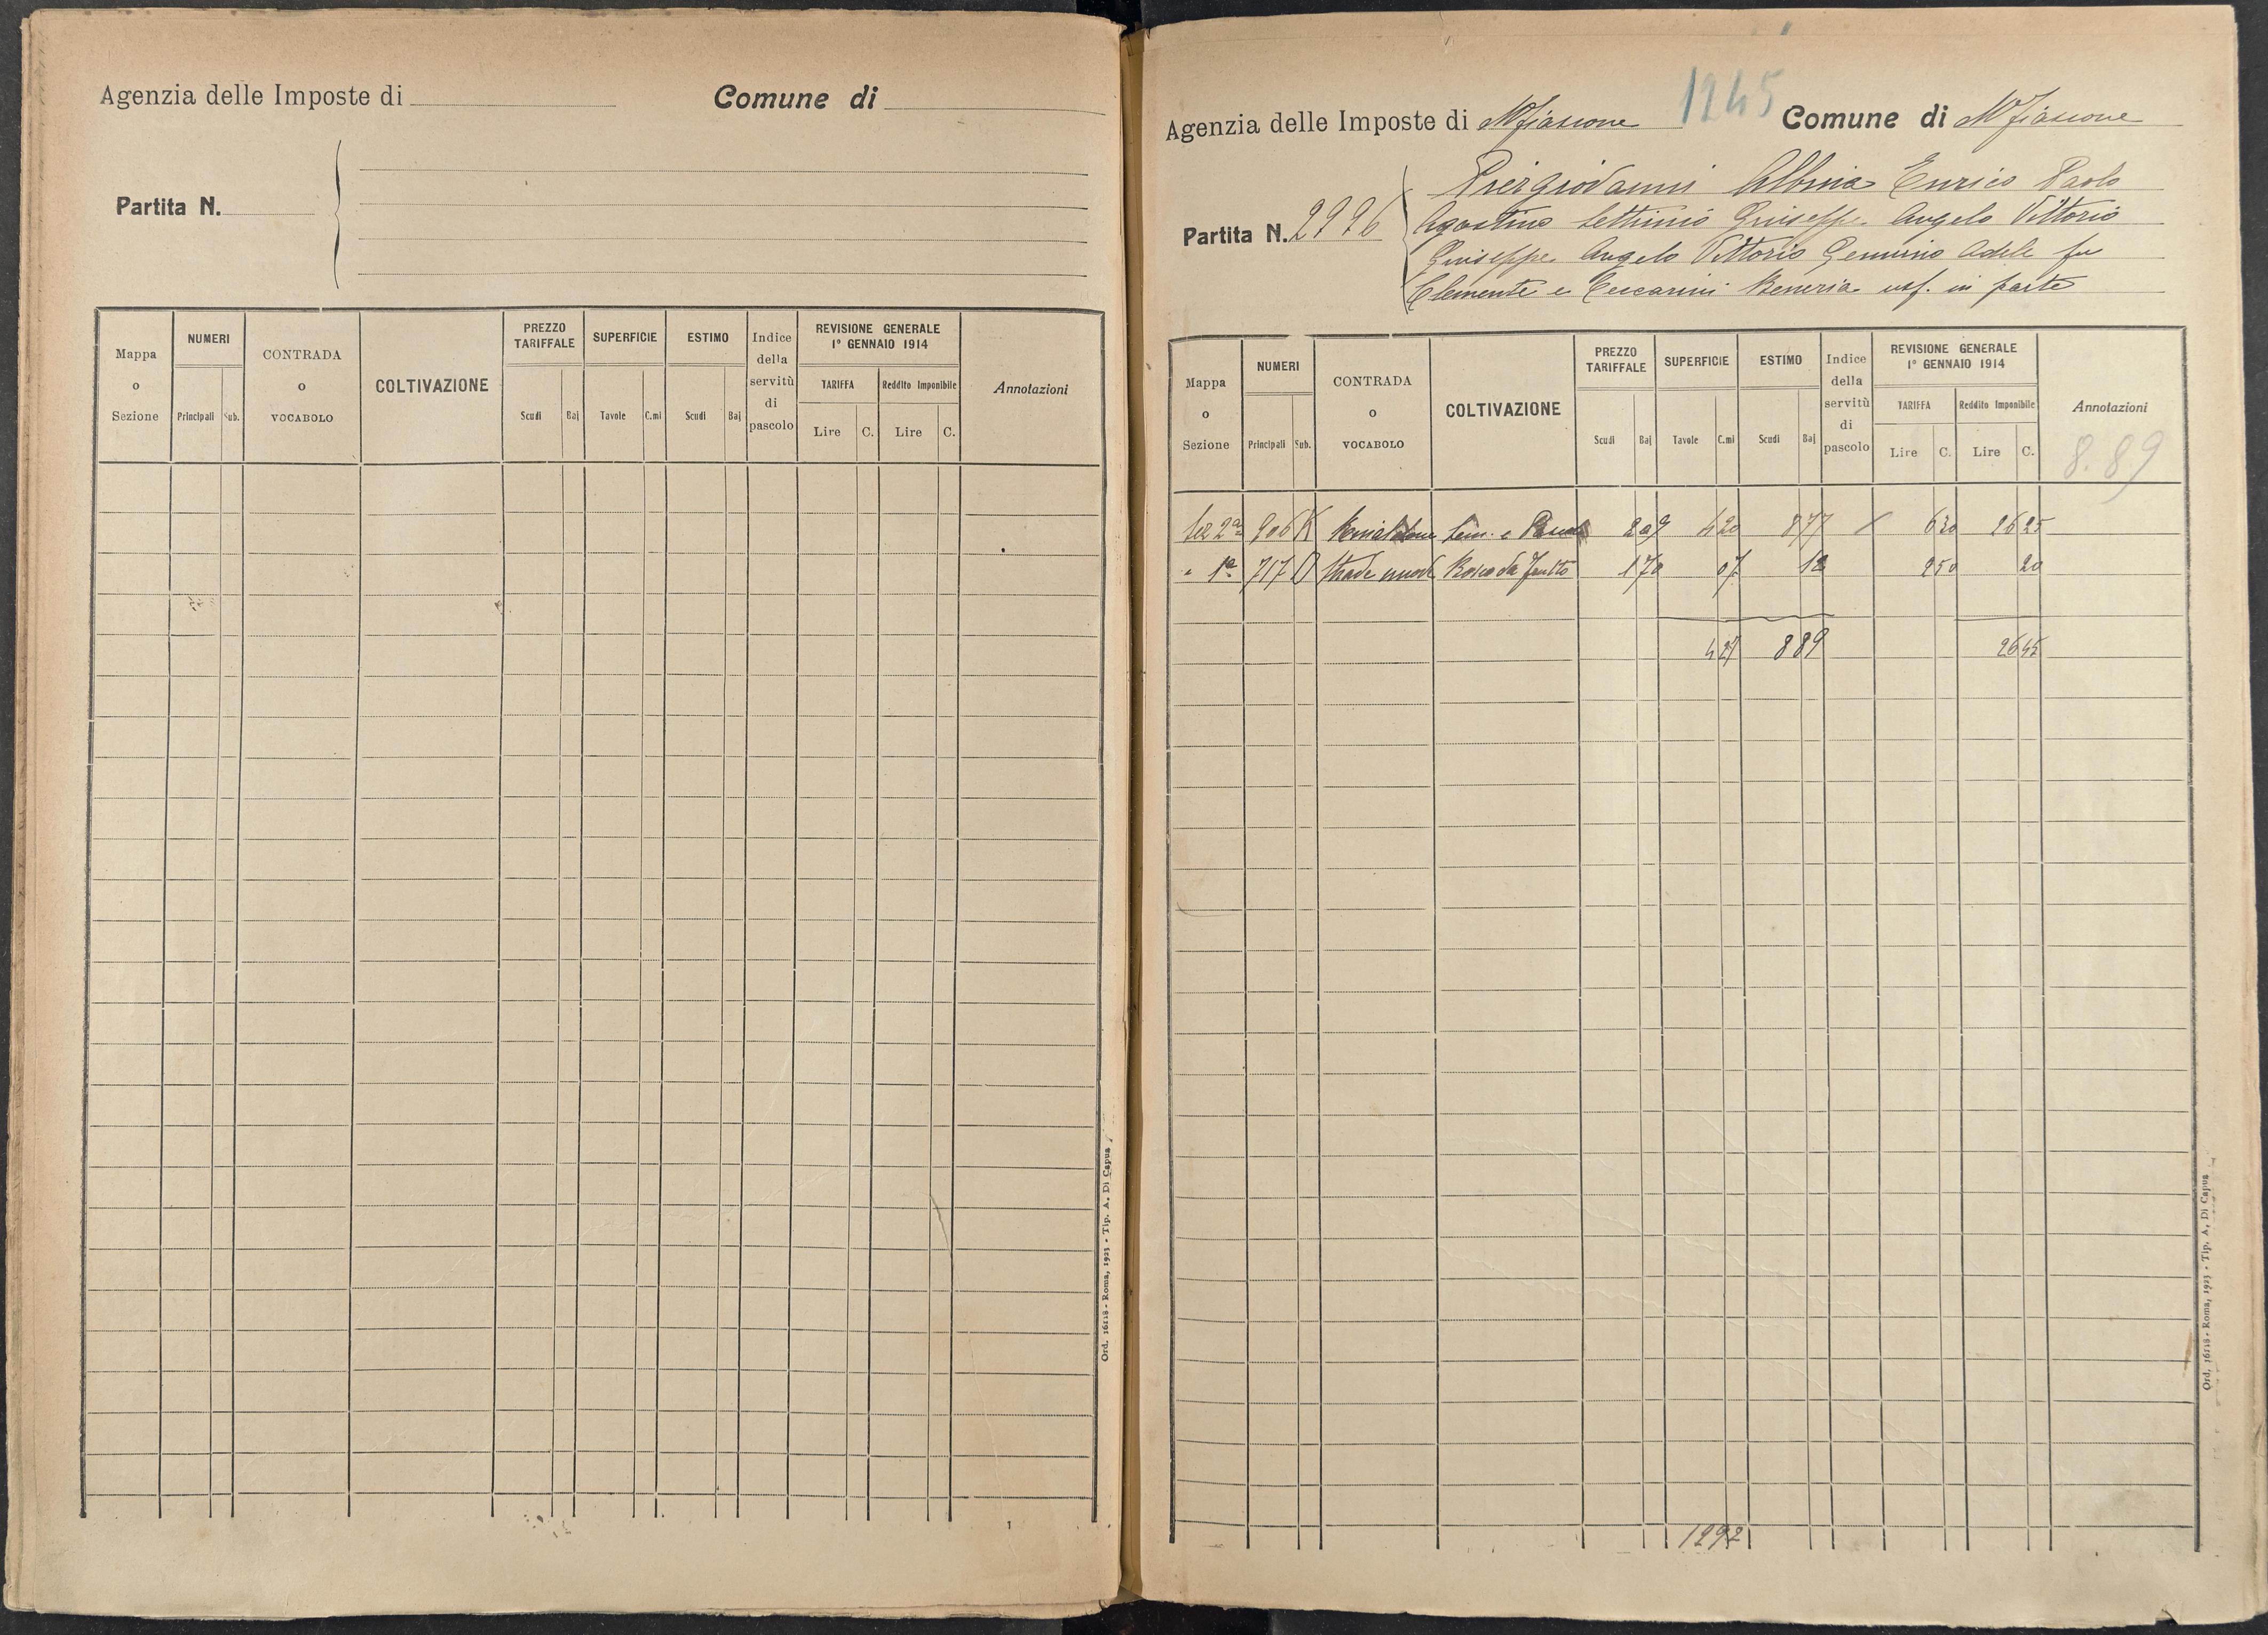 Agenzia delle Imposte di
Comune di
Partita N.
Mappa o Sezione
NUMERI
Principali
Sub.
CONTRADA o VOCABOLO
COLTIVAZIONE
PREZZO TARIFFALE
Scudi
Baj
SUPERFICIE
Tavole
C.mi
ESTIMO
Scudi
Baj
Indice della servitù di pascolo
REVISIONE GENERALE 1° GENNAIO 1914
TARIFFA
Lire
C.
Reddito Imponibile
Lire
C.
Annotazioni
Ord. 16118 - Roma, 1923 - Tip. A. Di Capua
1245
Agenzia delle Imposte di Mfiascone
Comune di Mfiascone
Partita N. 2996
Piergiovanni Albina Enrico Paolo
Agostino Settimio Giuseppe Angelo Vittorio
Giuseppe Angelo Vittorio Gemino Adele fu
Clemente e Ceccarini usf. in parte
Mappa o Sezione
NUMERI
Principali
Sub.
CONTRADA o VOCABOLO
COLTIVAZIONE
PREZZO TARIFFALE
Scudi
Baj
SUPERFICIE
Tavole
C.mi
ESTIMO
Scudi
Baj
Indice della servitù di pascolo
REVISIONE GENERALE 1° GENNAIO 1914
TARIFFA
Lire
C.
Reddito Imponibile
Lire
C.
Annotazioni
8.89
Sez 2a 906 K Sem. e 209 420 877 630 2625
" 1a 717 Strade nuove Bosco da frutto 170 07 12 250 20
427 889 2645
1292
Ord. 16118 - Roma, 1923 - Tip. A. Di Capua